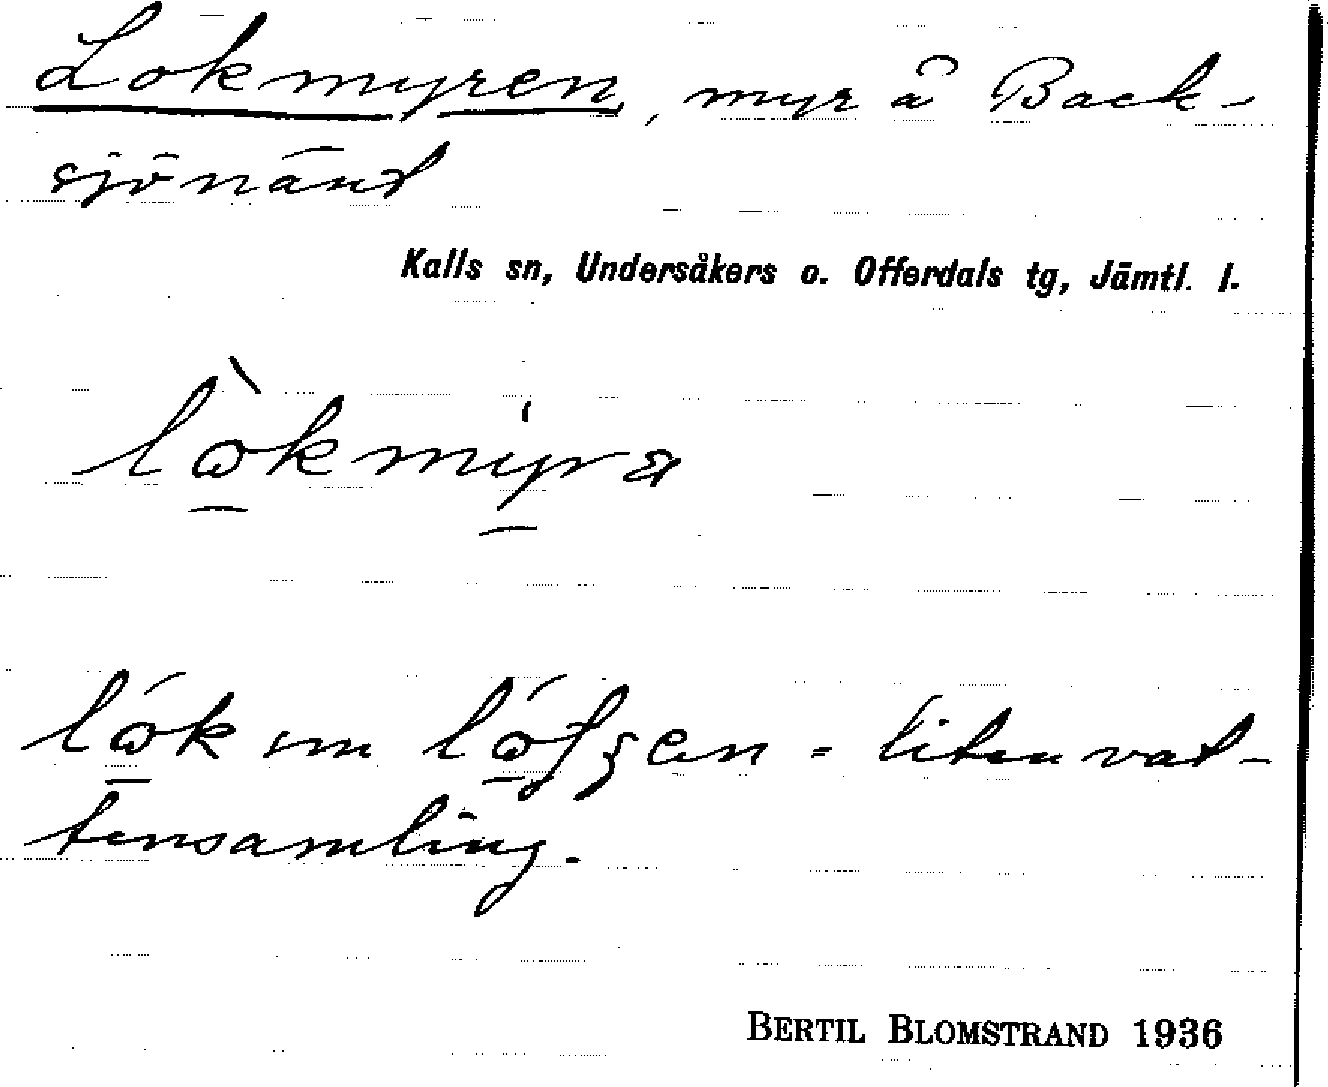 Lokmyren, myr å Back-
sjönäset
Kalls sn, Undersåkers o. Offerdals tg, Jämtl. l.
lòkmyra
lók sm = liten vat-
tensamling.
BERTIL BLOMSTRAND 1936